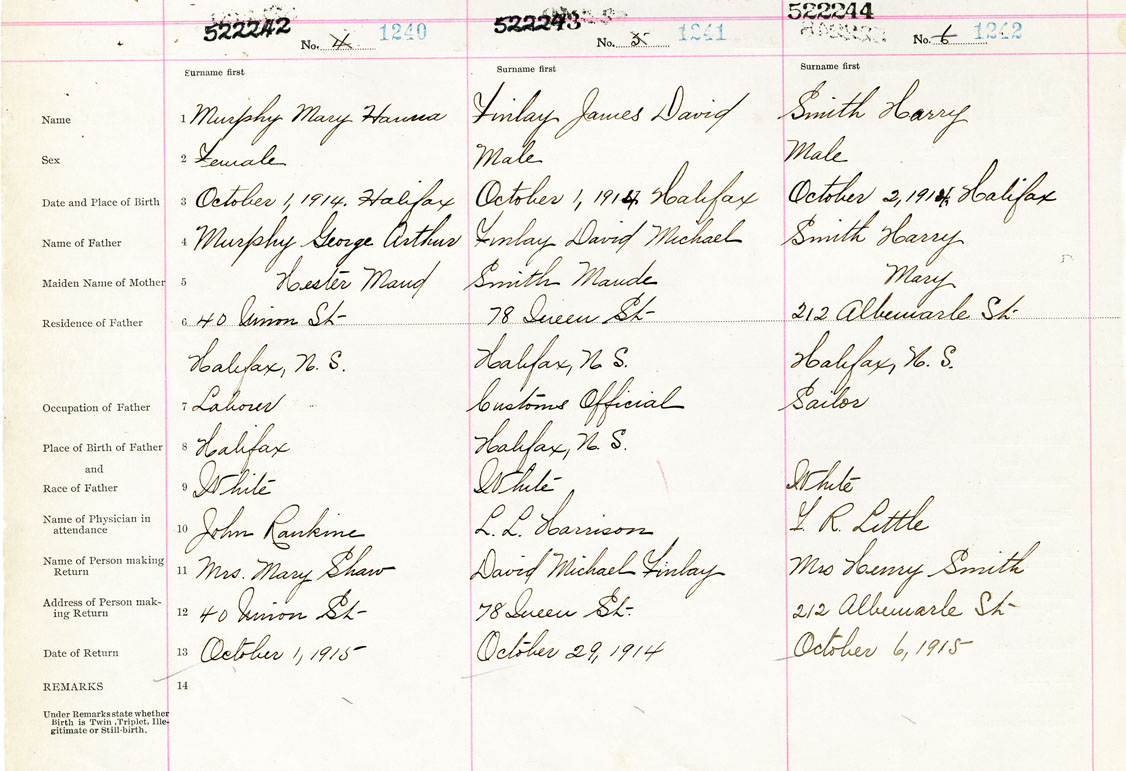 522242 522243 522244
No. 4 1240 No. 5 1241 No. 6 1242
Surname first Surname first Surname first
Name 1 Murphy Mary Hanna Finlay James David Smith Harry
Sex 2 Female Male Male
Date and Place of Birth 3 October 1, 1914. Halifax October 1, 1914 Halifax October 2, 1914, Halifax
Name of Father 4 Murphy George Arthur Finlay David Michael Smith Harry
Maiden Name of Mother 5 Hester Maud Smith Maude Mary
Residence of Father 6 40 Union St- 78 Queen St- 212 Albemarle St-
Halifax, N. S. Halifax, N. S. Halifax, N. S.
Occupation of Father 7 Laborer Customs Official Sailor
Place of Birth of Father 8 Halifax Halifax, N. S.
and
Race of Father 9 White White White
Name of Physician in
attendance 10 John Rankine L. L. Harrison F. R. Little
Name of Person making
Return 11 Mrs. Mary Shaw David Michael Finlay Mrs Henry Smith
Address of Person mak-
ing Return 12 40 Union St- 78 Queen St- 212 Albemarle St-
Date of Return 13 October 1, 1915 October 29, 1914 October 6, 1915
REMARKS 14
Under Remarks state whether
Birth is Twin, Triplet, Ille-
gitimate or Still-birth.